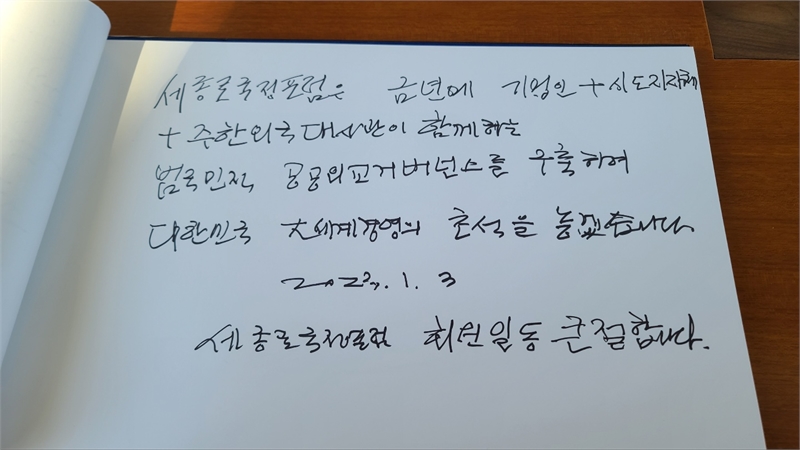 세종로국정포럼은 금년에 기업인 + 시도지자체
+ 주한외국대사관이 함께하는
범국민적 공공외교거버넌스를 구축하여
대한민국 大세계경영의 초석을 놓겠습니다
2023. 1. 3
세종로국정포럼 회원일동 큰절합니다.